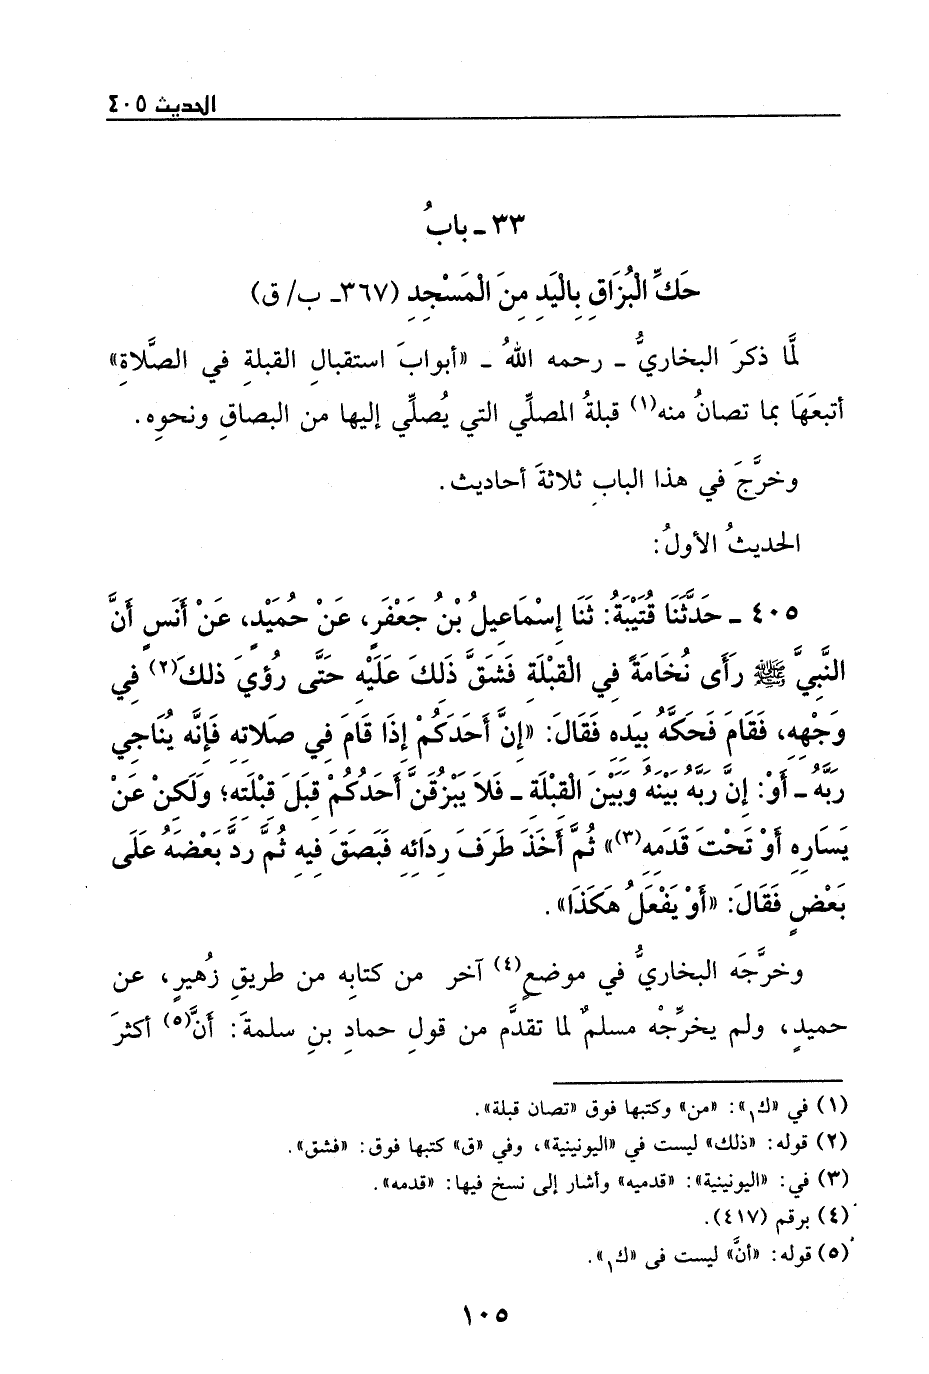 الحديث ٤٠٥
٣٣ ـ بابُ
حَكِّ الْبُزَاقِ بِالْيَدِ مِنَ الْمَسْجِدِ (٣٦٧ـ ب/ ق)
لمَّا ذكرَ البخاريُّ ـ رحمه اللهُ ـ «أبوابَ استقبالِ القبلةِ في الصَّلاةِ»
أتبعَهَا بما تصانُ منه(١) قبلةُ المصلِّي التي يُصلِّي إليها من البصاقِ ونحوِه .
وخرَّجَ في هذا البابِ ثلاثةَ أحاديث .
الحديثُ الأولُ:
٤٠٥ ـ حَدَّثَنَا قُتَيْبَةُ: ثَنَا إِسْمَاعِيلُ بْنُ جَعْفَرٍ، عَنْ حُمَيْدٍ، عَنْ أَنَسٍ أَنَّ
النَّبِيَّ ﷺ رَأَى نُخَامَةً فِي الْقِبْلَةِ فَشَقَّ ذَلِكَ عَلَيْهِ حَتَّى رُؤِيَ ذلكَ(٢) فِي
وَجْهِهِ، فَقَامَ فَحَكَّهُ بِيَدِهِ فَقَالَ: «إِنَّ أَحَدَكُمْ إِذَا قَامَ فِي صَلاتِهِ فَإِنَّهُ يُنَاجِي
رَبَّهُ ـ أَوْ: إِنَّ رَبَّهُ بَيْنَهُ وَبَيْنَ الْقِبْلَةِ ـ فَلاَ يَبْزُقَنَّ أَحَدُكُمْ قِبَلَ قِبْلَتِهِ؛ وَلَكِنْ عَنْ
يَسَارِهِ أَوْ تَحْتَ قَدَمِهِ(٣)» ثُمَّ أَخَذَ طَرَفَ رِدَائِهِ فَبَصَقَ فِيهِ ثُمَّ رَدَّ بَعْضَهُ عَلَى
بَعْضٍ فَقَالَ: «أَوْ يَفْعَلُ هَكَذَا» .
وخرَّجَه البخاريُّ في موضعٍ(٤) آخر من كتابِه من طريقِ زُهيرٍ، عن
حميدٍ، ولم يخرِّجْه مسلمٌ لما تقدَّم من قولِ حمادِ بنِ سلمةَ: أنَّ(٥) أكثرَ
(١) في «ك١»: «من» وكتبها فوق «تصان قبلة».
(٢) قوله: «ذلك» ليست في «اليونينية»، وفي «ق» كتبها فوق: «فشق».
(٣) في: «اليونينية»: «قدميه» وأشار إلى نسخ فيها: «قدمه».
(٤) برقم (٤١٧).
(٥) قوله: «أنَّ» ليست فى «ك١».
١٠٥